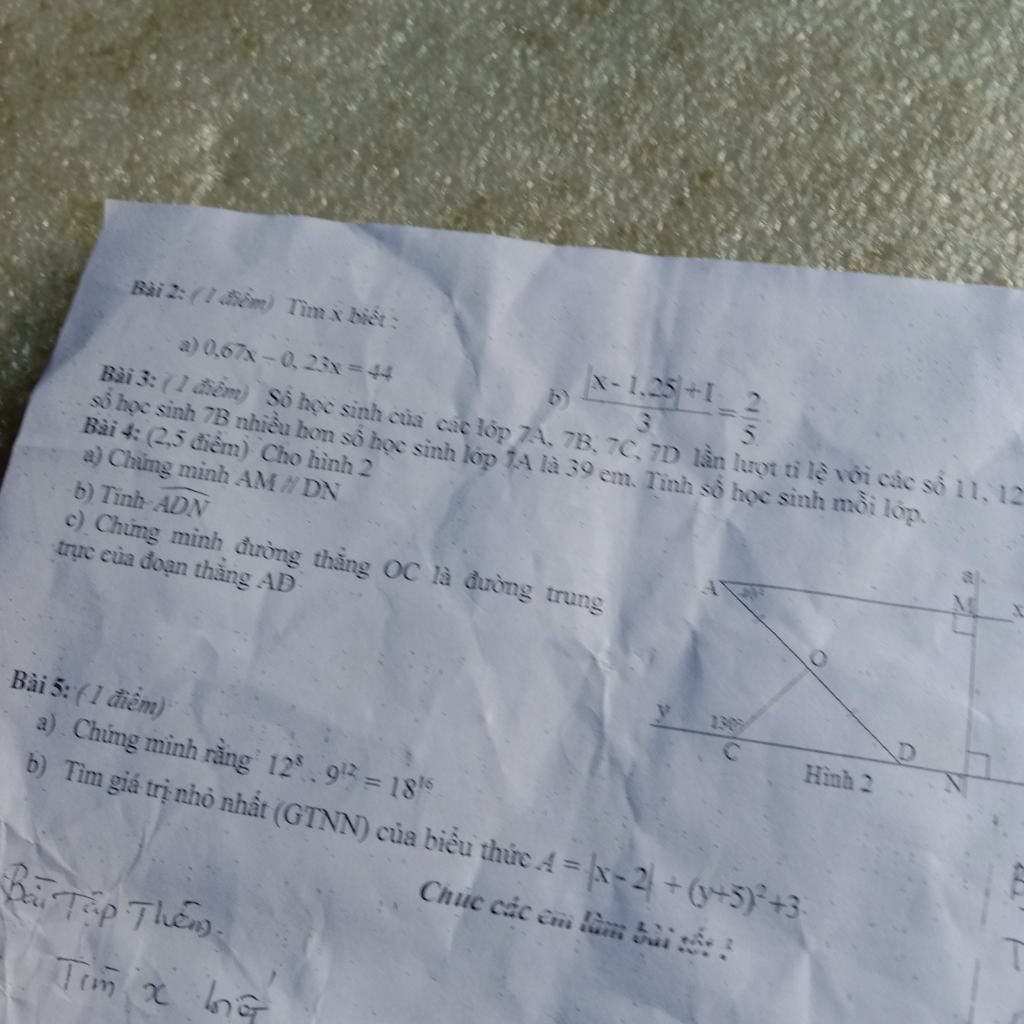 Bài 2: ( 1 điểm) Tìm x biết :
a) 0,67x – 0, 23x = 44
b) |x - 1,25| + 1 / 3 = 2 / 5
Bài 3: ( 1 điểm) Số học sinh của các lớp 7A, 7B, 7C, 7D lần lượt tỉ lệ với các số 11, 12
số học sinh 7B nhiều hơn số học sinh lớp 7A là 39 em. Tính số học sinh mỗi lớp.
Bài 4: (2,5 điểm) Cho hình 2
a) Chứng minh AM // DN
b) Tính ADN
c) Chứng minh đường thẳng OC là đường trung
trực của đoạn thẳng AD
a
A
M
x
O
y
130°
C
D
N
Hình 2
Bài 5: ( 1 điểm)
a) Chứng minh rằng 12⁸ . 9¹² = 18¹⁶
b) Tìm giá trị nhỏ nhất (GTNN) của biểu thức A = |x - 2| + (y+5)² +3
Chúc các em làm bài tốt !
Bài Tập Thêm.
Tìm x